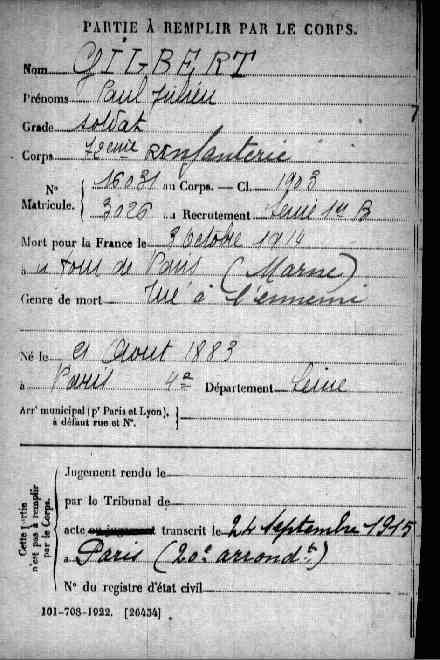 PARTIE À REMPLIR PAR LE CORPS.
Nom GILBERT
Prénoms Paul Julien
Grade Soldat
Corps Infanterie
N° Matricule. 16031 au Corps. — Cl. 1903
3026 au Recrutement Seine 1er B
Mort pour la France le 3 Octobre 1914
à de Paris (Marne)
Genre de mort Tué à l'ennemi
Né le Août 1883
à Paris 4e Département Seine
Arrt municipal (pr Paris et Lyon), à défaut rue et N°.
Cette partie n'est pas à remplir par le Corps.
Jugement rendu le
par le Tribunal de
acte ou jugement transcrit le 24 septembre 1915
à Paris (20e arrondt)
N° du registre d'état civil
101-708-1922. [26434]